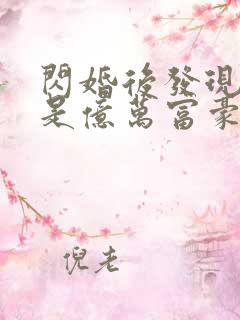 閃婚後發現
是億萬富豪
倪老